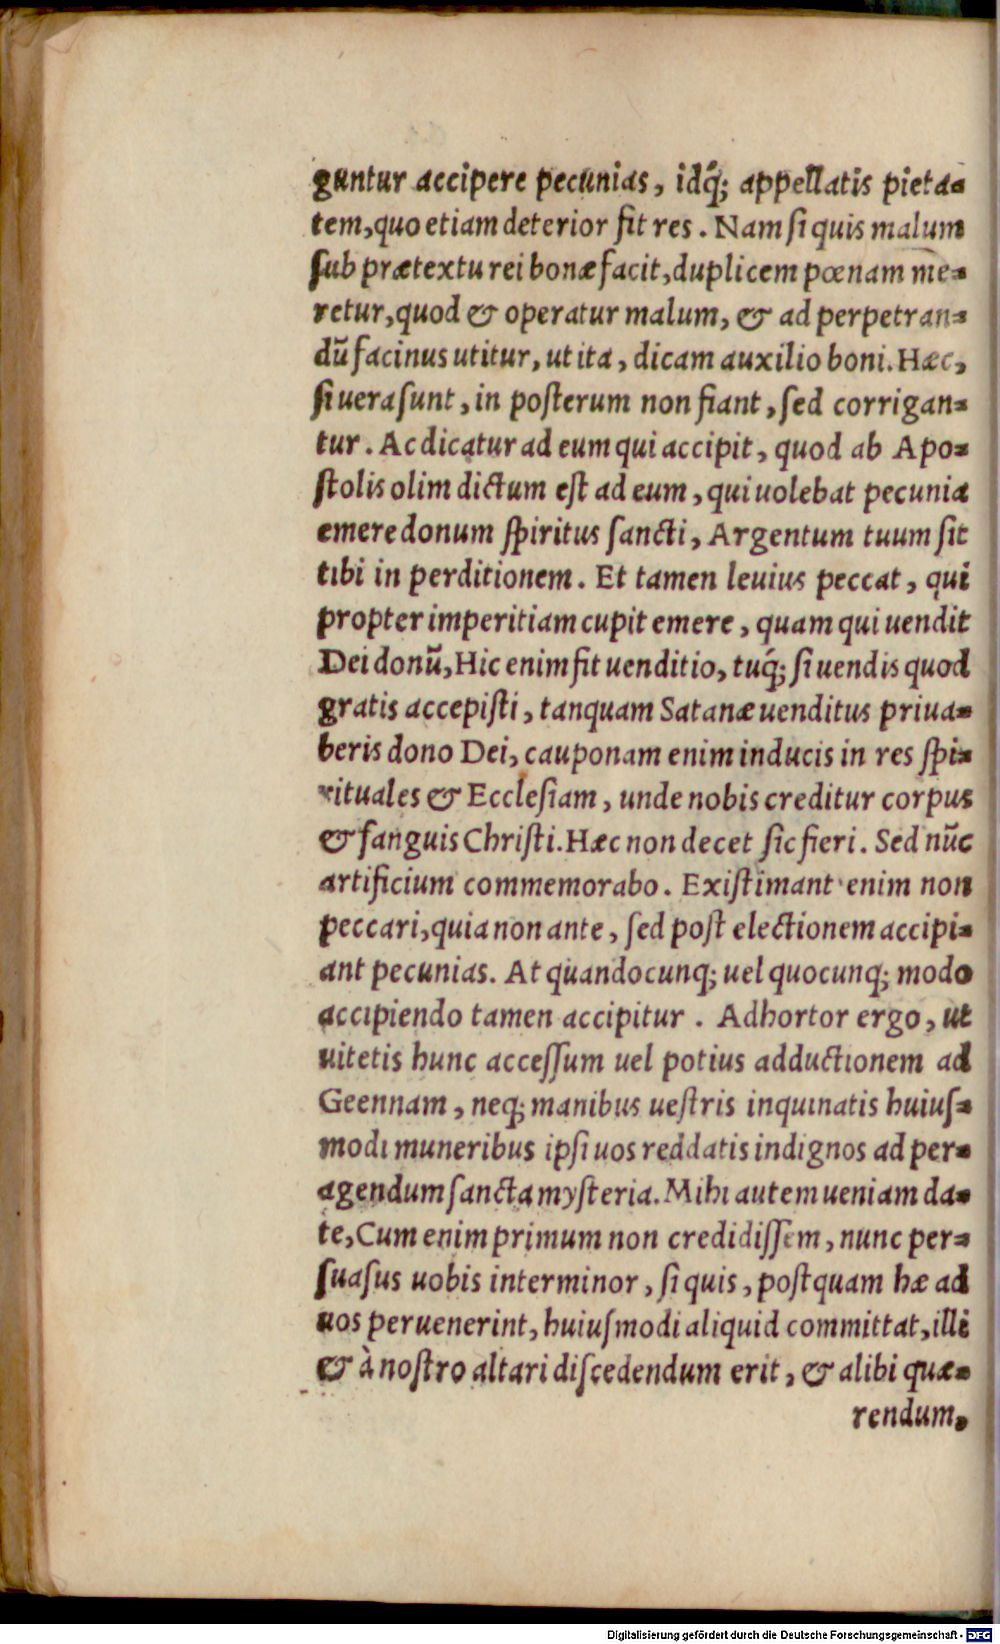 guntur accipere pecunias, idq́; appellatis pieta-
tem, quo etiam deterior fit res. Nam si quis malum
sub prætextu rei bonæ facit, duplicem pœnam me-
retur, quod & operatur malum, & ad perpetran-
dū facinus utitur, ut ita, dicam auxilio boni. Hæc,
si uera sunt, in posterum non fiant, sed corrigan-
tur. Ac dicatur ad eum qui accipit, quod ab Apo-
stolis olim dictum est ad eum, qui uolebat pecunia
emere donum spiritus sancti, Argentum tuum sit
tibi in perditionem. Et tamen leuius peccat, qui
propter imperitiam cupit emere, quam qui uendit
Dei donū, Hic enim fit uenditio, tuq́; si uendis quod
gratis accepisti, tanquam Satanæ uenditus priua-
beris dono Dei, cauponam enim inducis in res spi-
rituales & Ecclesiam, unde nobis creditur corpus
& sanguis Christi. Hæc non decet sic fieri. Sed nūc
artificium commemorabo. Existimant enim non
peccari, quia non ante, sed post electionem accipi-
ant pecunias. At quandocunq; uel quocunq; modo
accipiendo tamen accipitur. Adhortor ergo, ut
uitetis hunc accessum uel potius adductionem ad
Geennam, neq; manibus uestris inquinatis huius-
modi muneribus ipsi uos reddatis indignos ad per-
agendum sancta mysteria. Mihi autem ueniam da-
te, Cum enim primum non credidissem, nunc per-
suasus uobis interminor, si quis, postquam hæ ad
uos peruenerint, huiusmodi aliquid committat, illi
& à nostro altari discedendum erit, & alibi quæ-
rendum,
Digitalisierung gefördert durch die Deutsche Forschungsgemeinschaft - DFG